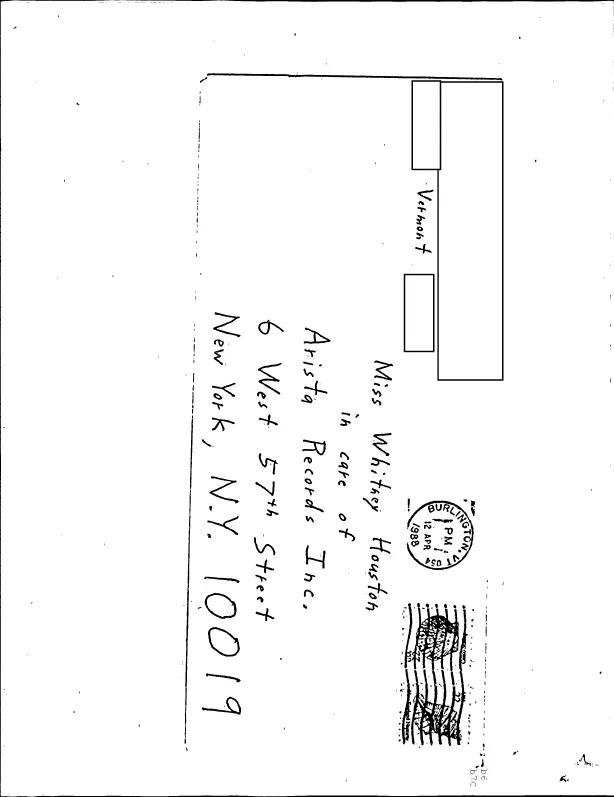 Vermont
BURLINGTON, VT 054
PM
12 APR
1988
Miss Whitney Houston
in care of
Arista Records Inc.
6 West 57th Street
New York, N.Y. 10019
b6
b7C